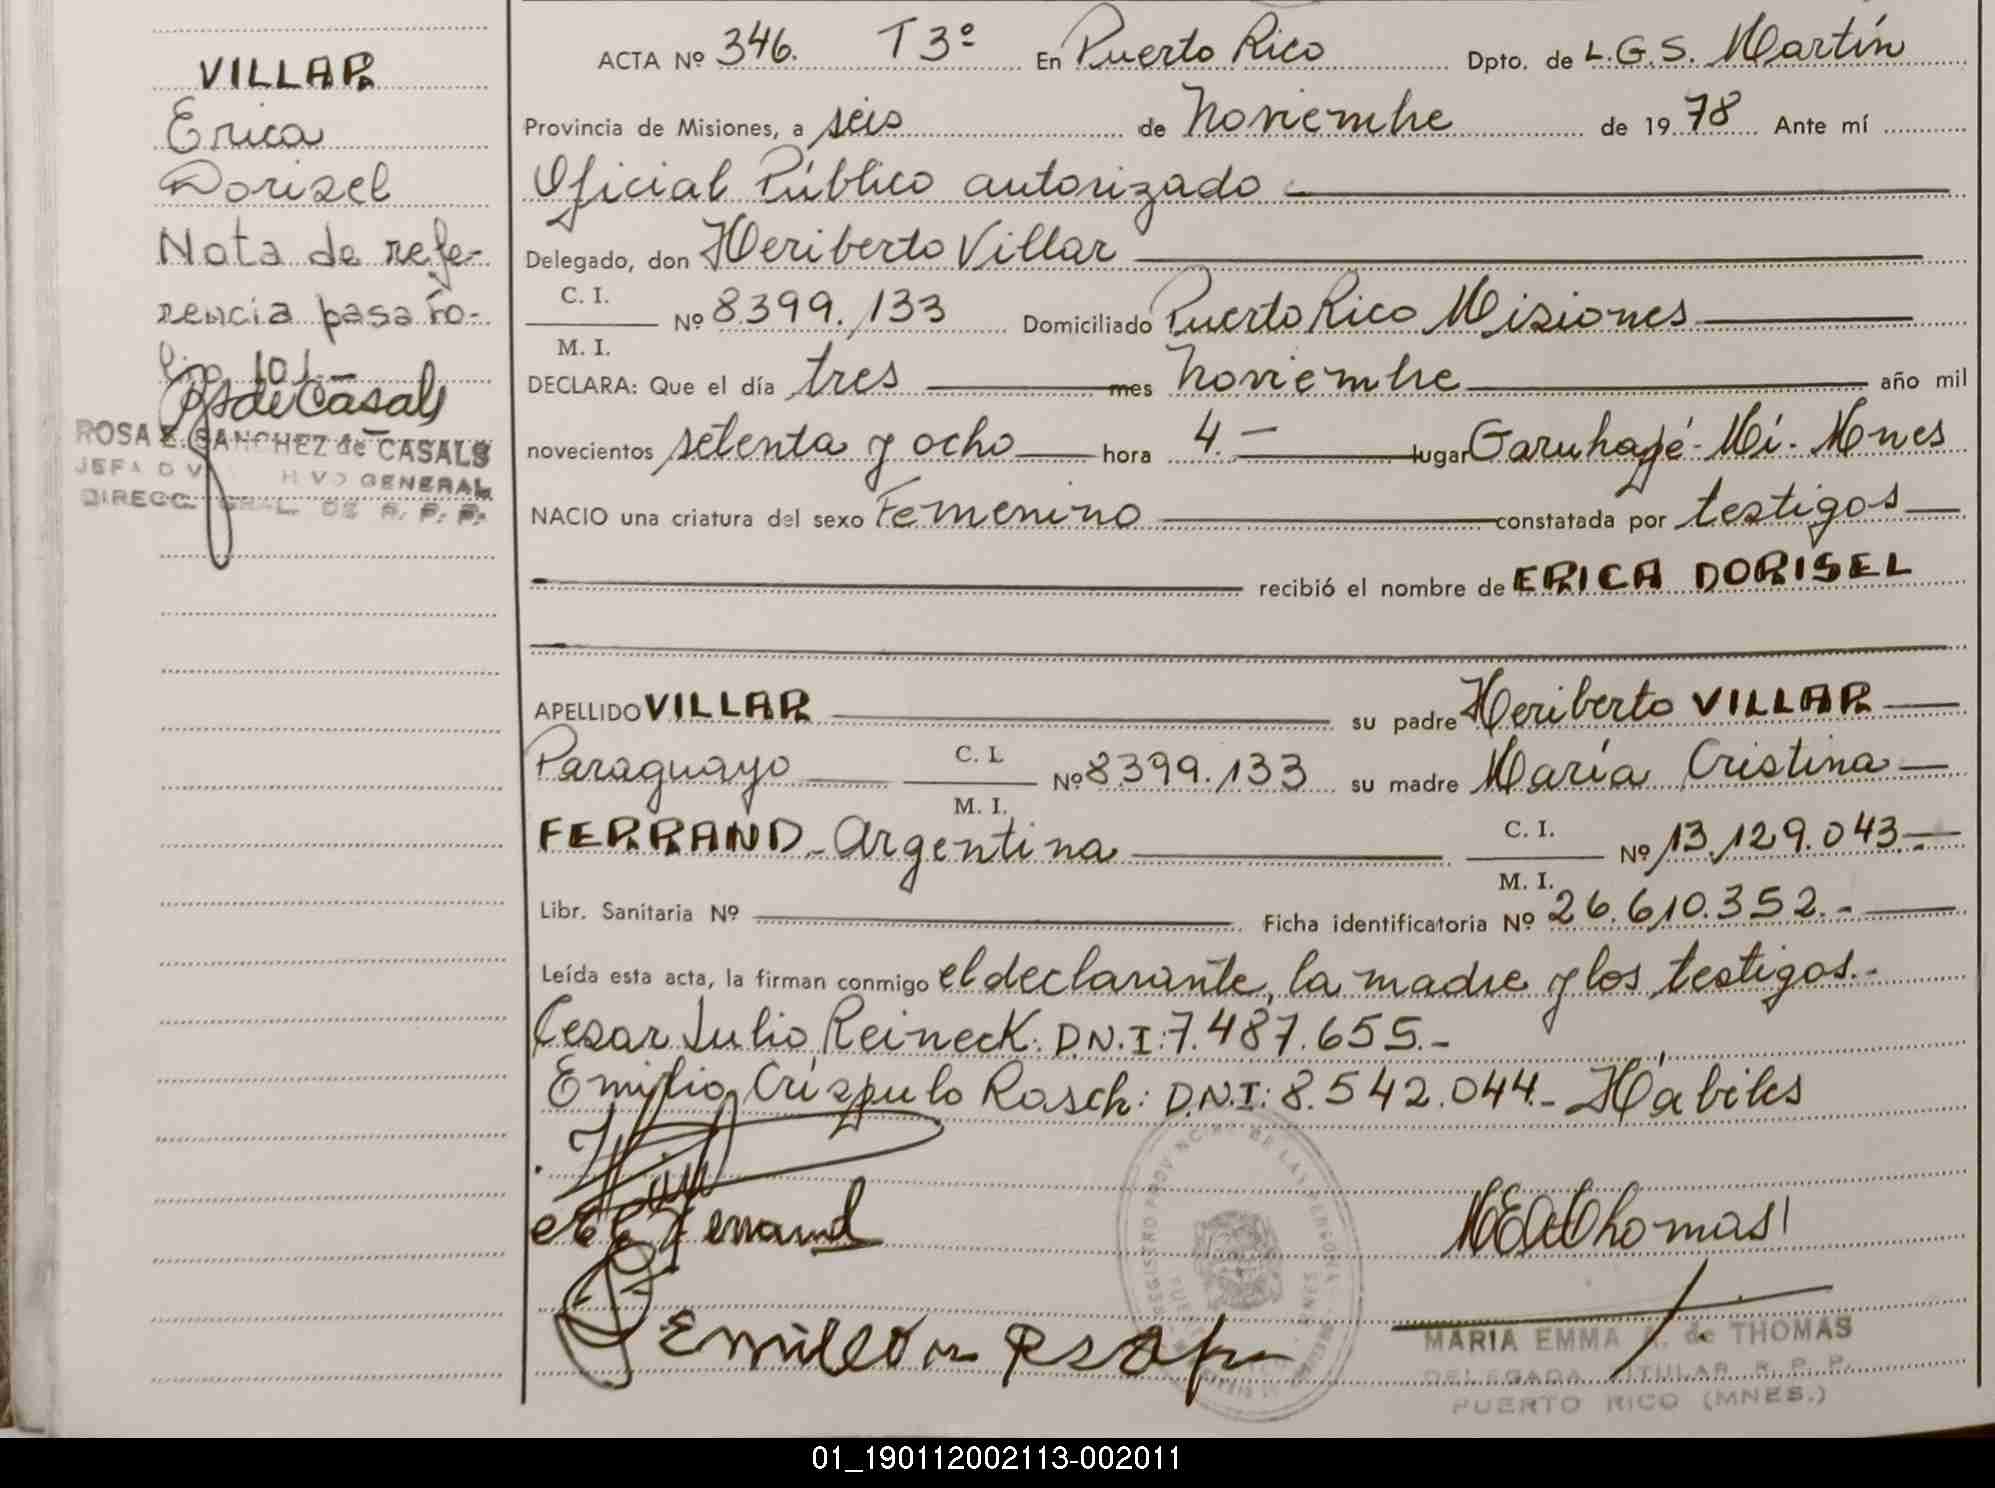 VILLAR
Erica
Dorisel
Nota de refe-
rencia pasa fo-
lio 101.-
RS de Casals
ROSA E. SANCHEZ de CASALS
JEFA DIV HIVO GENERAL
DIRECC. GRAL. DE R. P. P.
ACTA Nº 346. T3º En Puerto Rico Dpto. de L.G.S. Martín
Provincia de Misiones, a seis de Noviembre de 1978 Ante mí
Oficial Público autorizado
Delegado, don Heriberto Villar
C. I.
Nº 8399.133 Domiciliado Puerto Rico Misiones
M. I.
DECLARA: Que el día tres mes Noviembre año mil
novecientos setenta y ocho hora 4.- lugar Garuhapé-Mi-Mnes
NACIO una criatura del sexo Femenino constatada por testigos
recibió el nombre de ERICA DORISEL
APELLIDO VILLAR su padre Heriberto VILLAR
Paraguayo C. I. Nº 8399.133 su madre María Cristina
M. I.
FERRAND - Argentina C. I. Nº 13.129.043.-
M. I.
Libr. Sanitaria Nº Ficha identificatoria Nº 26.610.352.-
Leída esta acta, la firman conmigo el declarante, la madre y los testigos.-
Cesar Julio Reineck: D.N.I: 7.487.655.-
Emilio Críspulo Rasch: D.N.I: 8.542.044.- Hábiles
Ferrand
MEA de Thomas
REGISTRO PROVINCIAL DE LAS PERSONAS
MARIA EMMA A. de THOMAS
DELEGADA TITULAR R. P. P.
PUERTO RICO (MNES.)
01_190112002113-002011